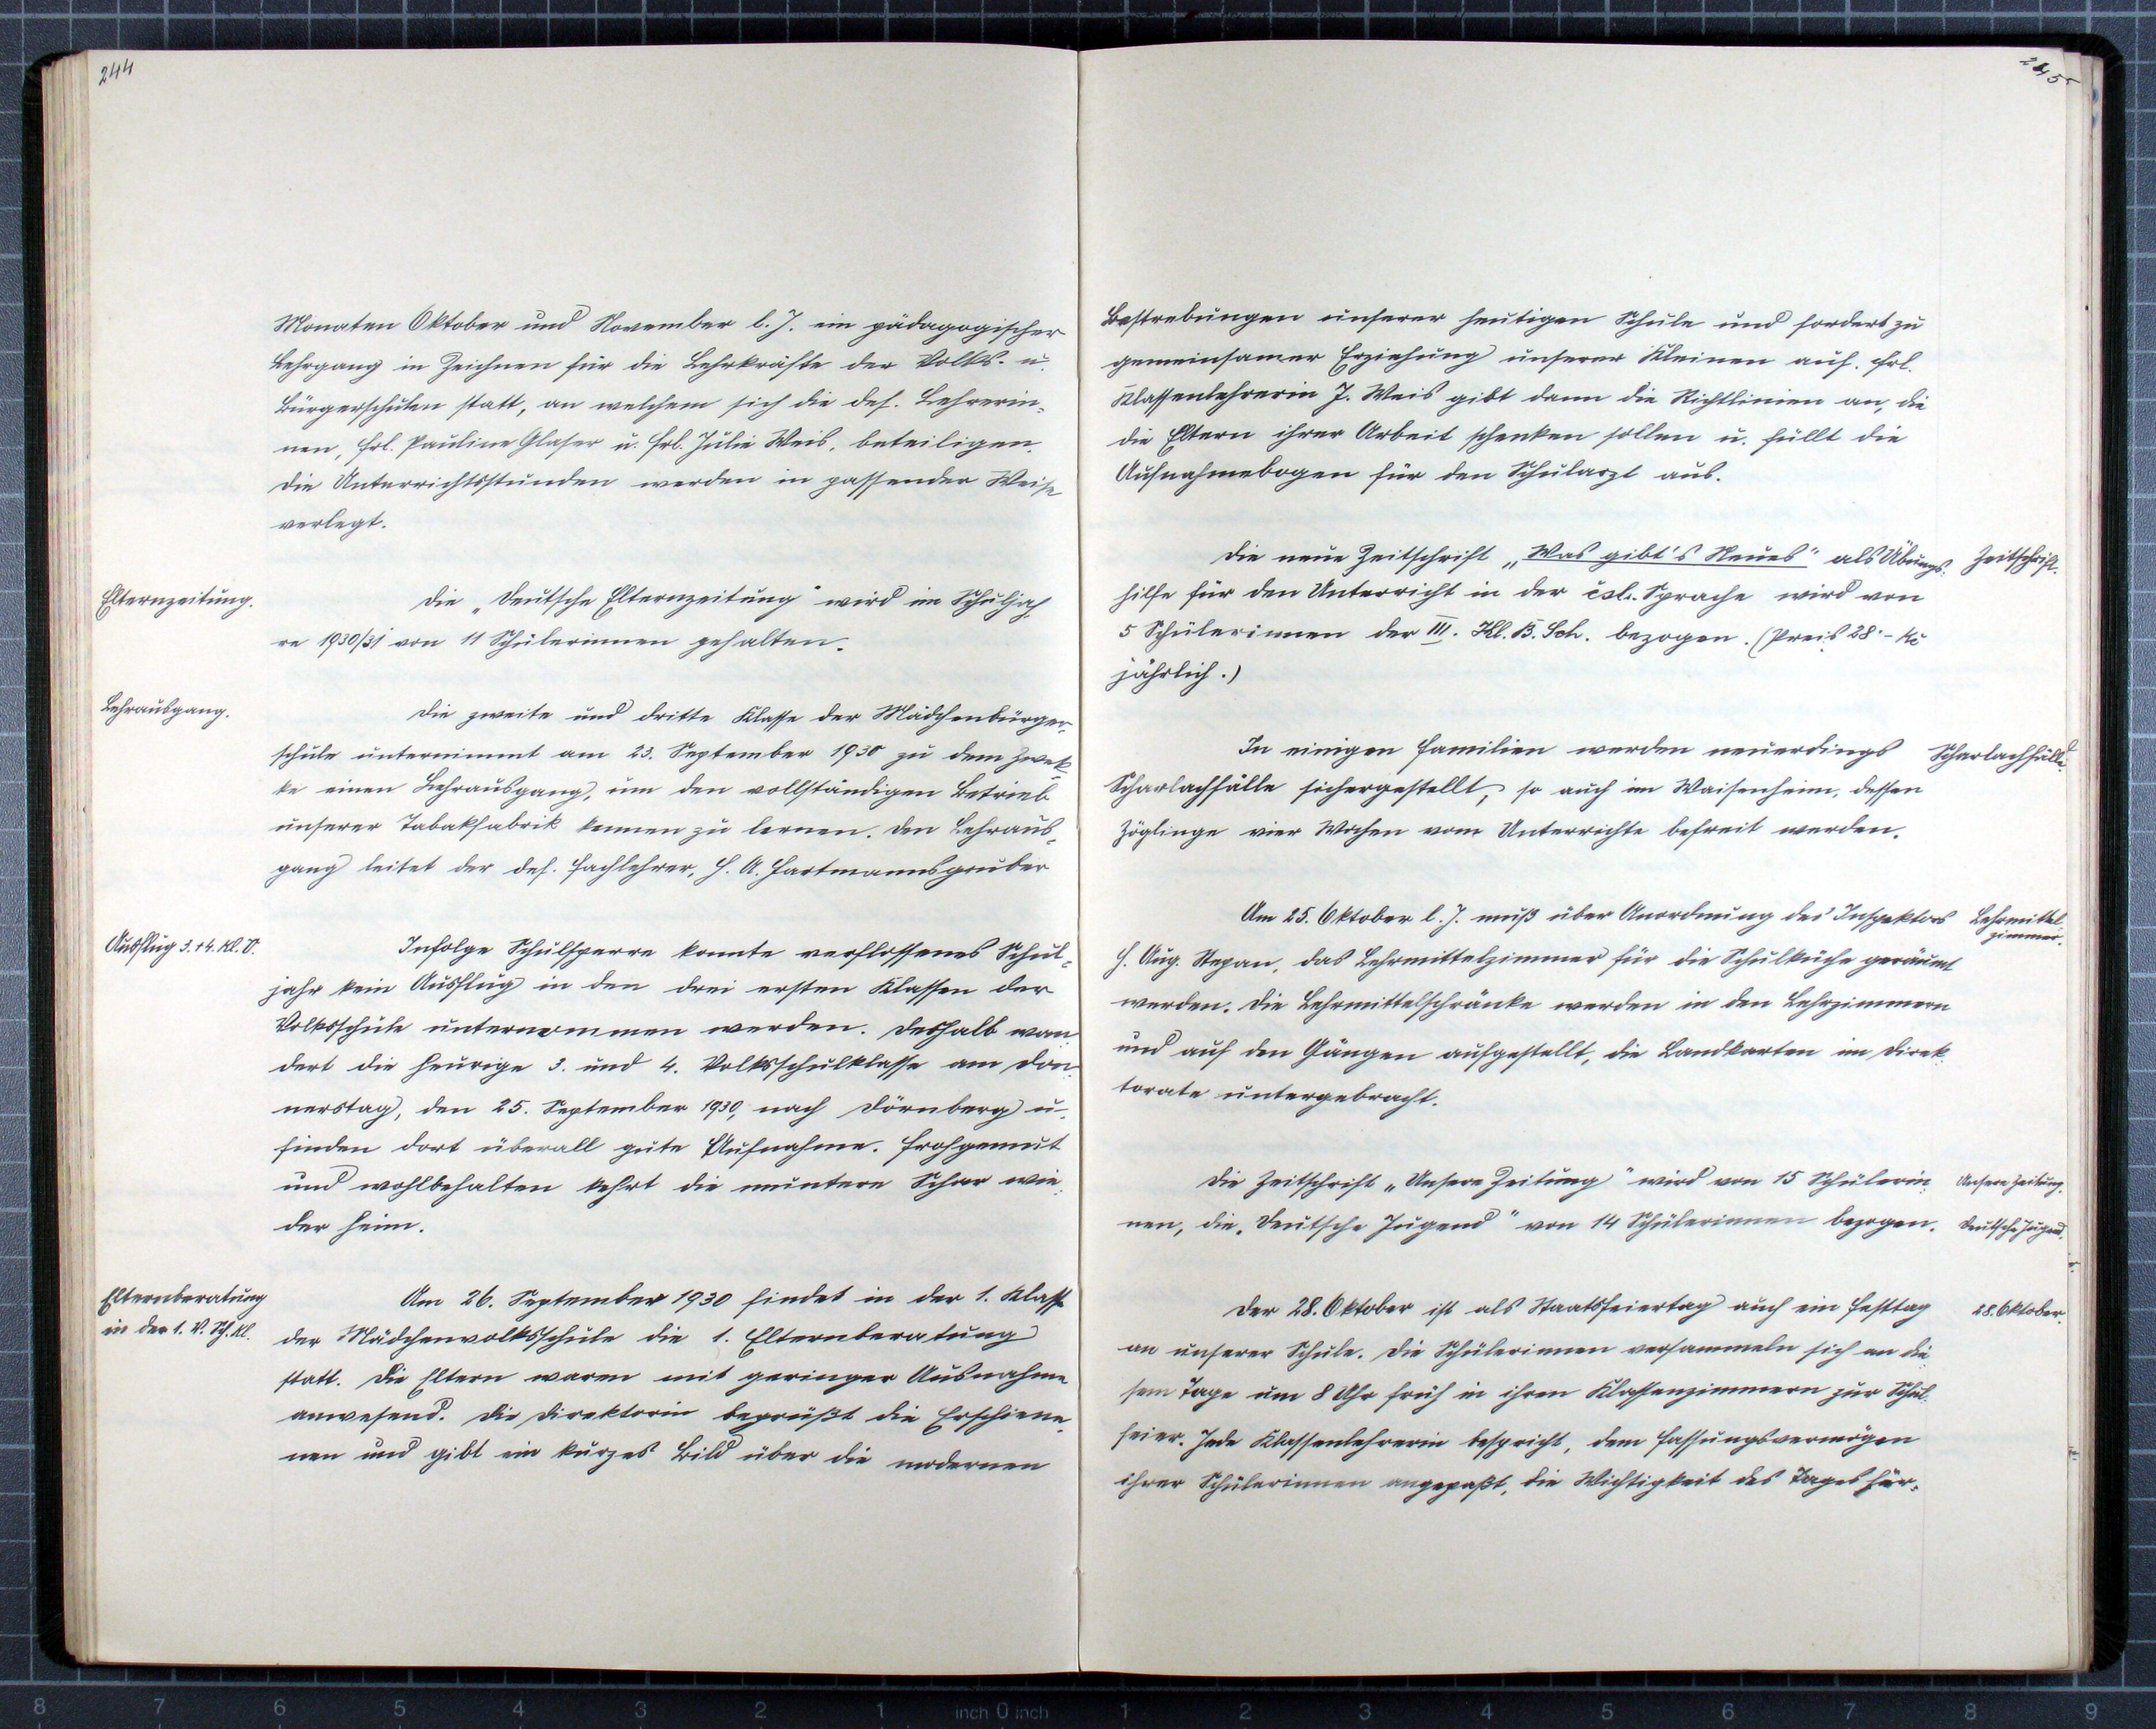 244
Monaten Oktober und November l. J. ein pädagogischer
Lehrgang in Zeichnen für die Lehrkräfte der Volks- u.
Bürgerschulen statt, an welchem sich die def. Lehrerin-
nen, Frl. Pauline Glaser u. Frl. Julie Weis, beteiligen.
Die Unterrichtsstunden werden in passender Weise
verlegt.
Elternzeitung.
Die „Deutsche Elternzeitung" wird im Schuljah-
re 1930/31 von 11 Schülerinnen gehalten.
Lehrausgang.
Die zweite und dritte Klasse der Mädchenbürger-
schule unternimmt am 23. September 1930 zu dem Zwek-
ke einen Lehrausgang, um den vollständigen Betrieb
unserer Tabakfabrik kennen zu lernen. Den Lehraus-
gang leitet der def. Fachlehrer, H. A. Hartmannsgruber
Ausflug 3. +4. Kl. V.
Infolge Schulsperre konnte verflossenes Schul-
jahr kein Ausflug in den drei ersten Klassen der
Volksschule unternommen werden. Deshalb wan-
dert die heurige 3. und 4. Volksschulklasse am Don-
nerstag, den 25. September 1930, nach Dörnberg u.
finden dort überall gute Aufnahme. Frohgemut
und wohlbehalten kehrt die muntere Schar wie-
der heim.
Elternberatung
in der 1. V. Sch. Kl.
Am 26. September 1930 findet in der 1. Klasse
der Mädchenvolksschule die 1. Elternberatung
statt. Die Eltern waren mit geringer Ausnahme
anwesend. Die Direktorin begrüßt die Erschiene-
nen und gibt ein kurzes Bild über die modernen
245
Bestrebungen unserer heutigen Schule und fordert zu
gemeinsamer Erziehung unserer Kleinen auf. Frl.
Klassenlehrerin J. Weis gibt dann die Richtlinien an, die
die Eltern ihrer Arbeit schenken sollen u. füllt die
Aufnahmebogen für den Schularzt aus.
Die neue Zeitschrift „Was gibt's Neues" als Übungs-
Zeitschrift.
hilfe für den Unterricht in der čsl. Sprache wird von
5 Schülerinnen der III. Kl. B. Sch. bezogen. (Preis 28·- Kč
jährlich.)
In einigen Familien werden neuerdings
Scharlachfälle.
Scharlachfälle sichergestellt, so auch im Waisenheim, dessen
Zöglinge vier Wochen vom Unterrichte befreit werden.
Am 25. Oktober l. J. muß über Anordnung des Inspektors
Lehrmittel-
zimmer.
H. Aug. Stepan, das Lehrmittelzimmer für die Schulküche geräumt
werden. Die Lehrmittelschränke werden in den Lehrzimmern
und auf den Gängen aufgestellt, die Landkarten im Direk-
torate untergebracht.
Die Zeitschrift „Unsere Zeitung" wird von 15 Schülerin-
Unsere Zeitung.
nen, die „Deutsche Jugend" von 14 Schülerinnen bezogen.
Deutsche Jugend.
Der 28. Oktober ist als Staatsfeiertag auch ein Festtag
28. Oktober.
an unserer Schule. Die Schülerinnen versammeln sich an die-
sem Tage um 8 Uhr früh in ihren Klassenzimmern zur Schul-
feier. Jede Klassenlehrerin bespricht, dem Fassungsvermögen
ihrer Schülerinnen angepaßt, die Wichtigkeit des Tages für
8 7 6 5 4 3 2 1 inch 0 inch 1 2 3 4 5 6 7 8 9